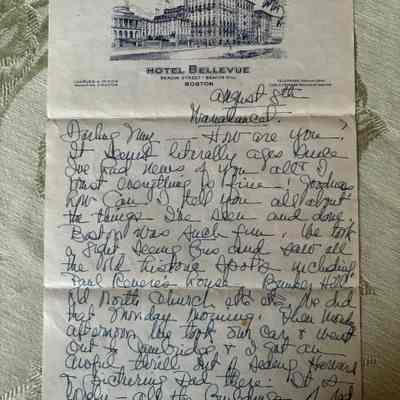 HOTEL BELLEVUE
BEACON STREET - BEACON HILL
BOSTON
August 8th
Darling Amy — How are you?
It seems literally ages since
I've had news of you all & I
trust everything is fine! Goodness
how can I tell you all about
the things I've seen and done.
Boston was such fun. We took
a sight seeing bus and saw all
the old historic spots including
Paul Revere's house - Bunker Hill -
Old North Church etc etc. We did
that Monday morning. Then Monday
afternoon we took our car & went
out to Cambridge & I got an
awful thrill out of seeing Harvard
& picturing Dad there. It is
lovely - all the buildings &